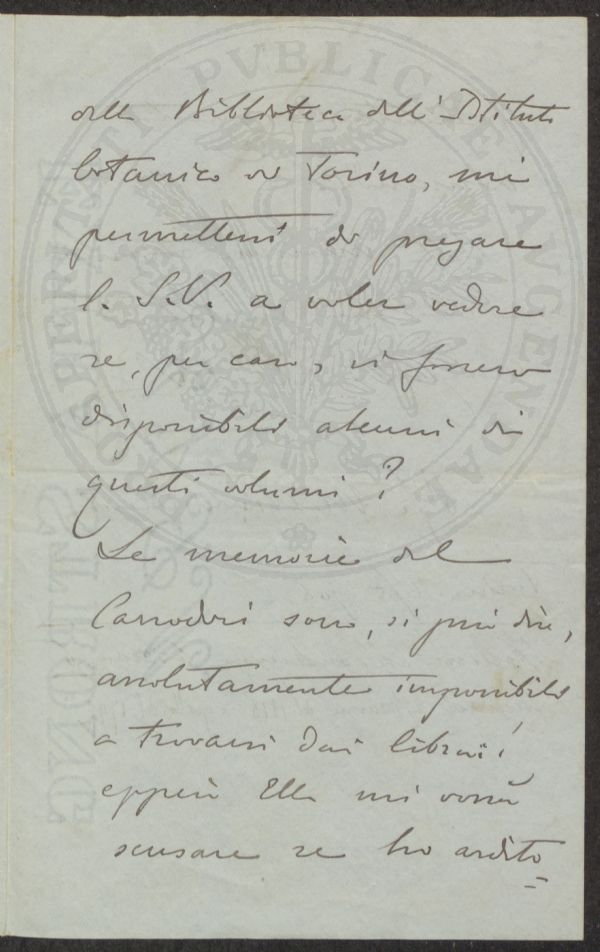 della Biblioteca dell'Istituto
botanico di Torino, mi
permetterei di pregare
l. S.V. a voler vedere
se, per caso, vi fossero
disponibili alcuni di
questi volumi?
Le memorie del
Carradori sono, si può dire,
assolutamente impossibili
a trovarsi dai librai;
eppero Ella mi vorrà
scusare se ho ardito
PVBLICAE
AVGENDAE
PROSPERITATI